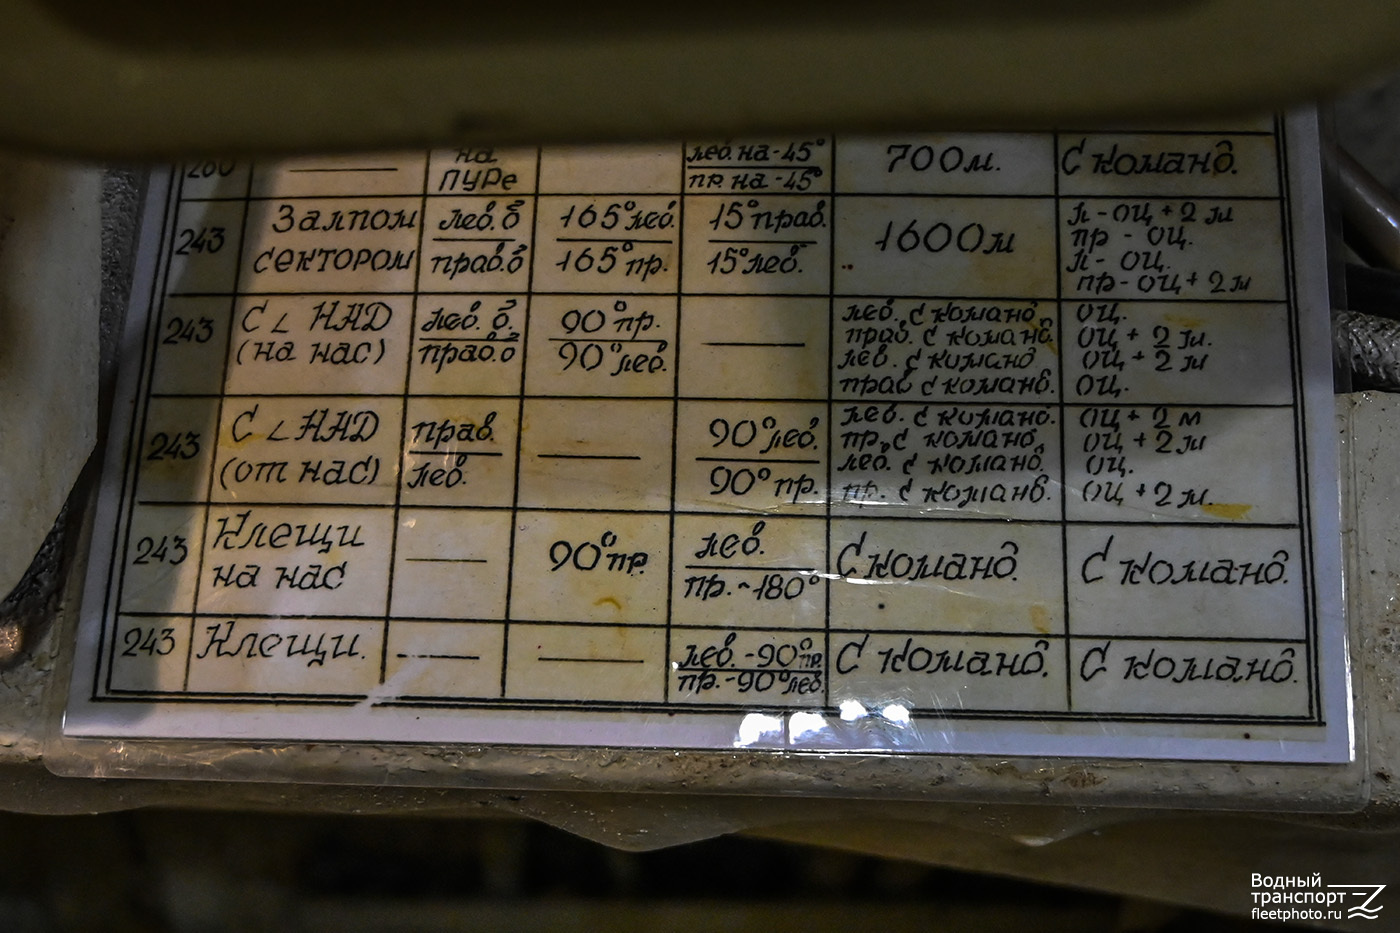 260 —— на ПУРе лев. на -45° пр. на -45° 700м. С команд.
243 Залпом сектором лев. б прав. б 165° лев. 165° пр. 15° прав. 15° лев. 1600м л - ОЦ + 2 м
пр - ОЦ.
л - ОЦ.
пр - ОЦ + 2м
243 С ∠ НАД (на нас) лев. б. прав. б 90° пр. 90° лев. —— лев. с команд. ОЦ.
прав. с команд. ОЦ + 2 м.
лев. с команд ОЦ + 2 м
прав с команд. ОЦ.
243 С ∠ НАД (от нас) прав. лев. —— 90° лев. 90° пр. лев. с команд. ОЦ + 2 м
пр. с команд. ОЦ + 2м
лев. с команд. ОЦ.
пр. с команд. ОЦ + 2 м.
243 Клещи на нас —— 90° пр. лев. пр. -180° С команд. С команд.
243 Клещи. —— —— лев. -90° пр. пр. -90° лев. С команд. С команд.
Водный
транспорт
fleetphoto.ru